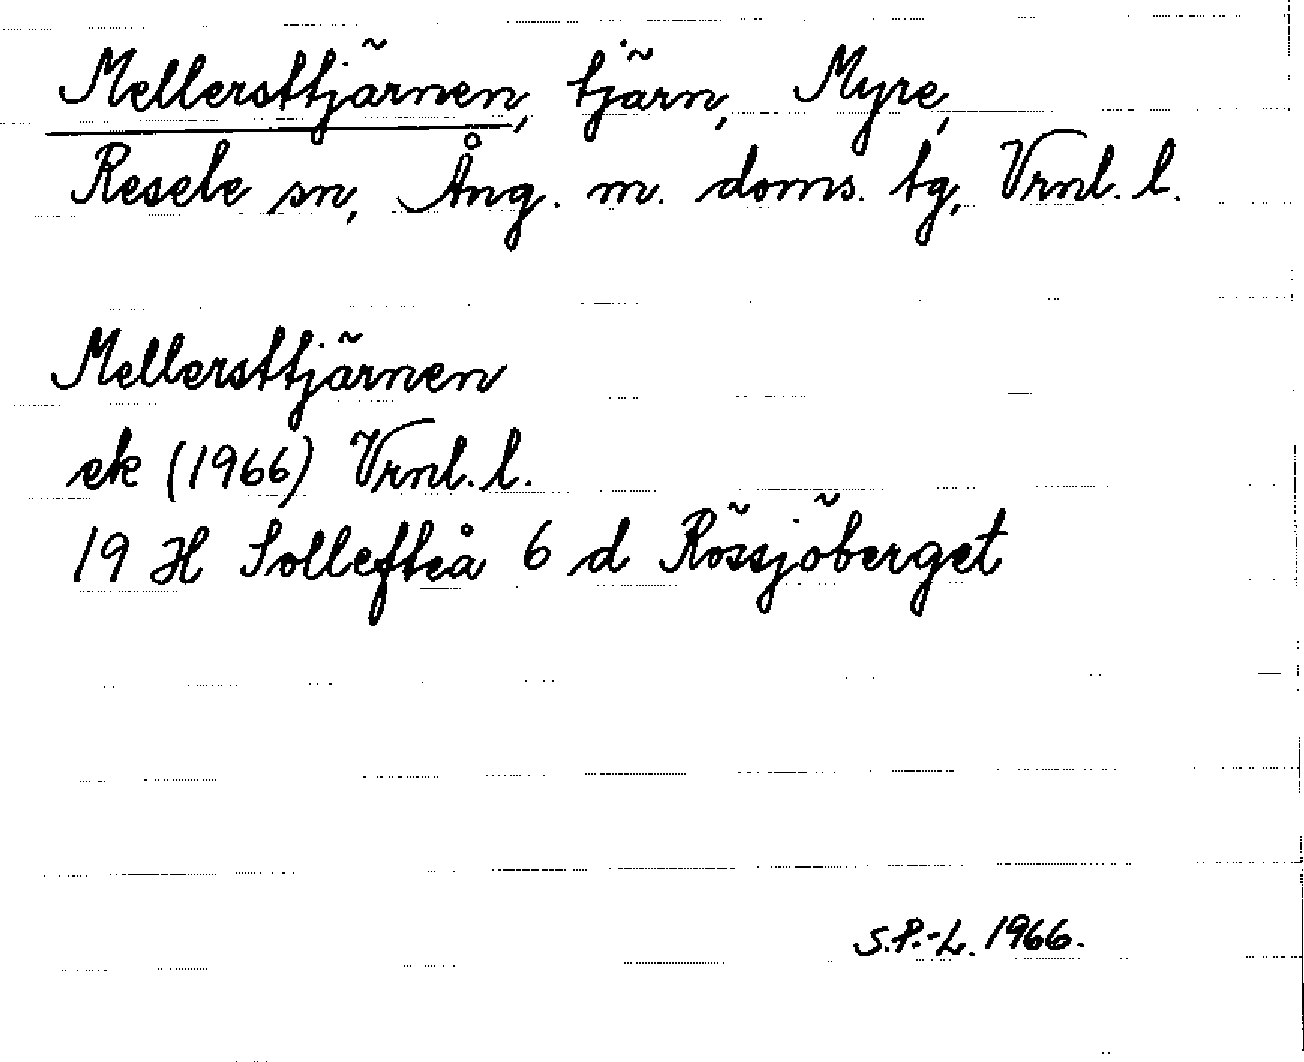 Mellersttjärnen, tjärn, Myre,
Resele sn, Ång. m. doms. tg, Vrnl. l.
Mellersttjärnen
ek (1966) Vrnl. l.
19 H Sollefteå 6 d Rössjöberget
S.P.-L. 1966.